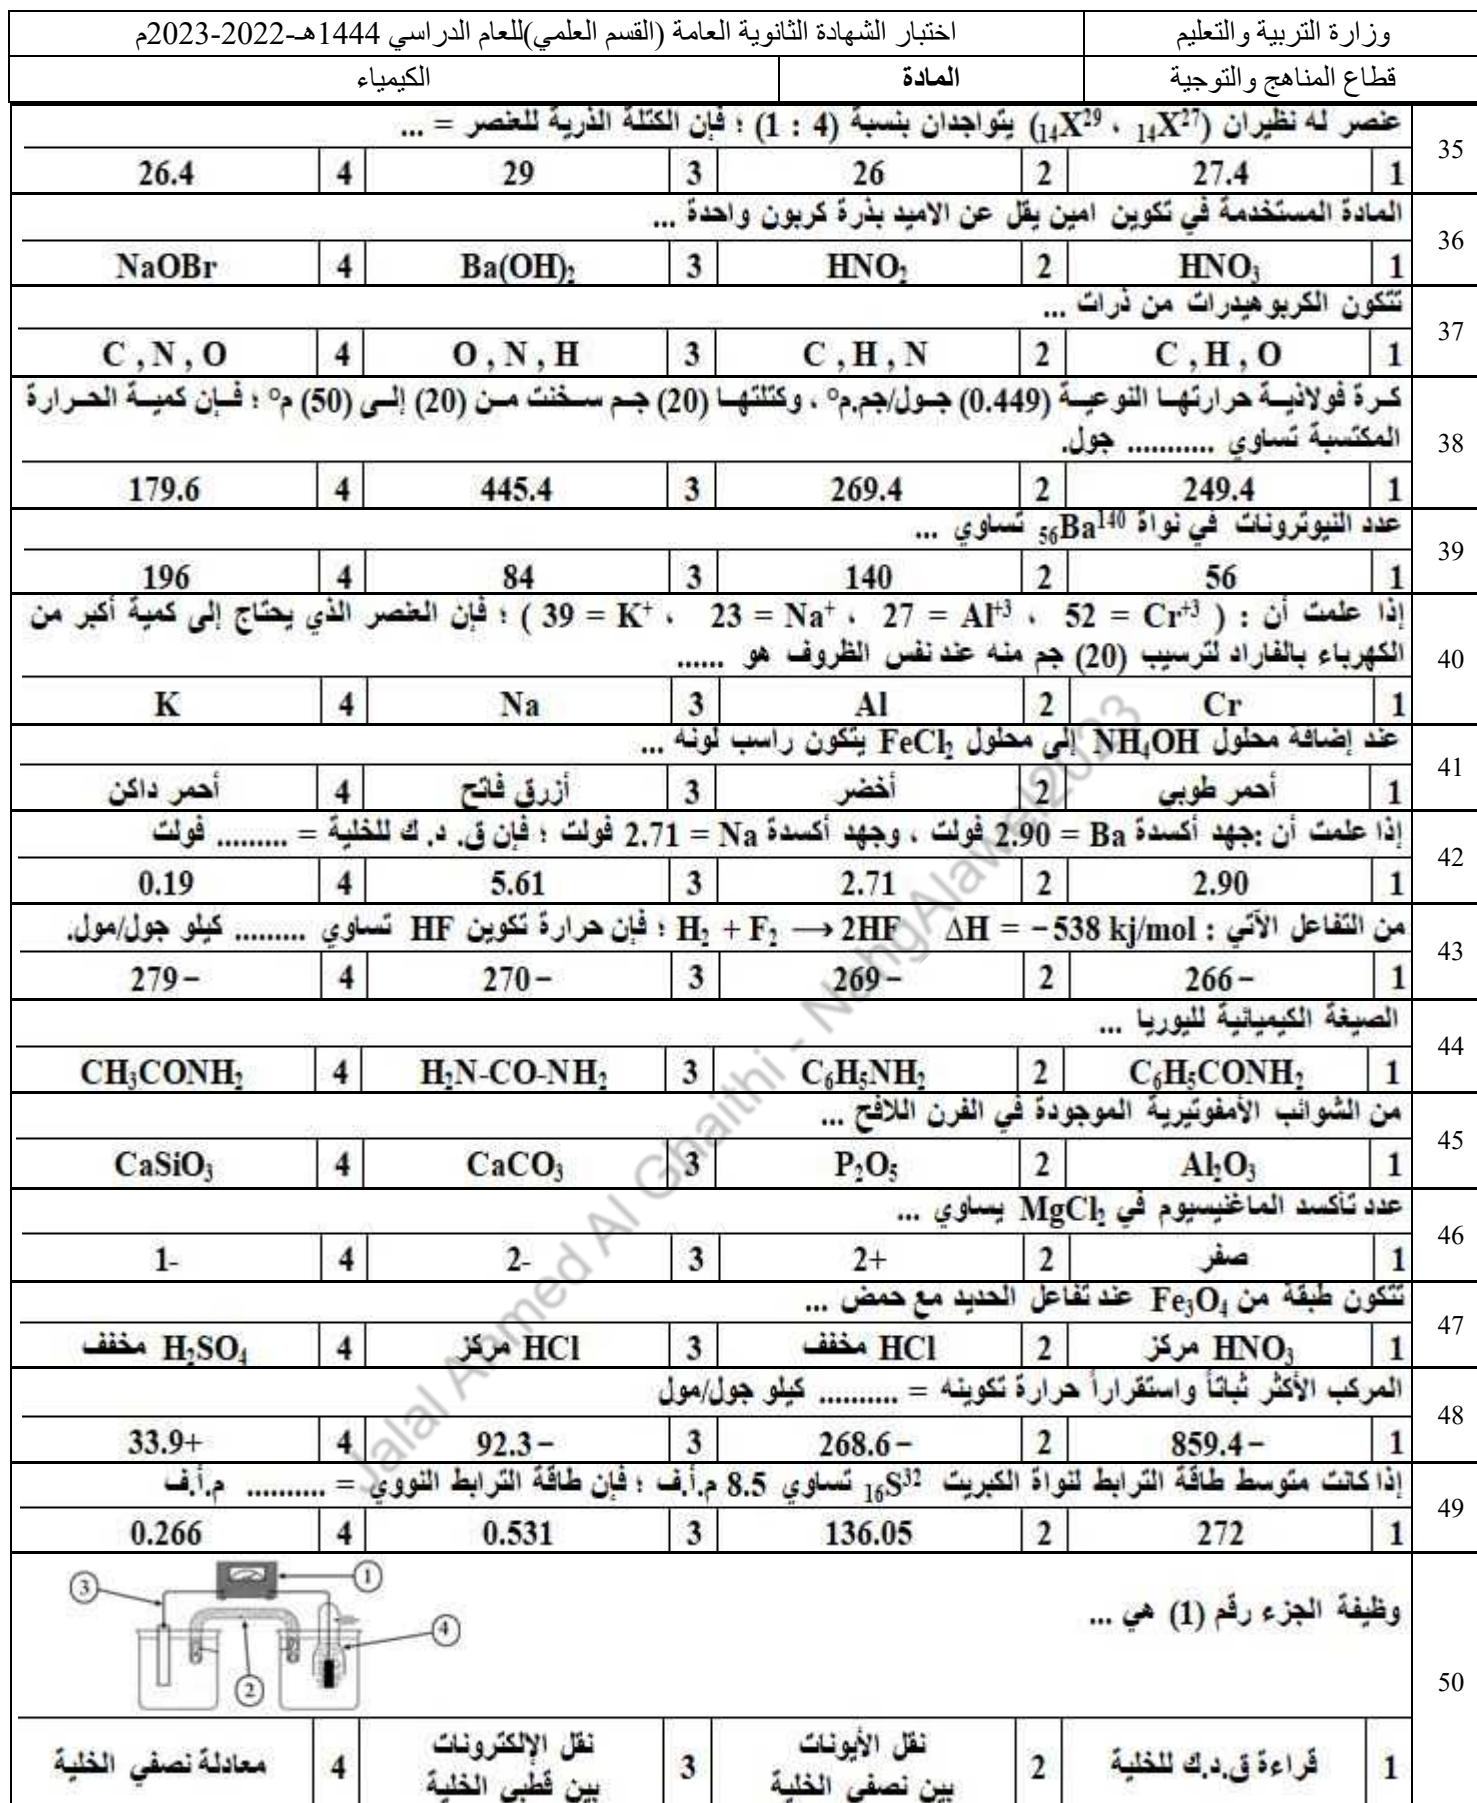 وزارة التربية والتعليم	اختبار الشهادة الثانوية العامة (القسم العلمي)للعام الدراسي 1444هـ-2022-2023م
قطاع المناهج والتوجية	المادة	الكيمياء
35	عنصر له نظيران (₁₄X²⁷ ، ₁₄X²⁹) يتواجدان بنسبة (4 : 1) ؛ فإن الكتلة الذرية للعنصر = ...
1	27.4	2	26	3	29	4	26.4
36	المادة المستخدمة في تكوين امين يقل عن الاميد بذرة كربون واحدة ...
1	HNO₃	2	HNO₂	3	Ba(OH)₂	4	NaOBr
37	تتكون الكربوهيدرات من ذرات ...
1	C , H , O	2	C , H , N	3	O , N , H	4	C , N , O
38	كرة فولاذية حرارتها النوعية (0.449) جول/جم.م° ، وكتلتها (20) جم سخنت من (20) إلى (50) م° ؛ فإن كمية الحرارة
المكتسبة تساوي ........... جول.
1	249.4	2	269.4	3	445.4	4	179.6
39	عدد النيوترونات في نواة ₅₆Ba¹⁴⁰ تساوي ...
1	56	2	140	3	84	4	196
40	إذا علمت أن : ( 52 = Cr⁺³ ، 27 = Al⁺³ ، 23 = Na⁺ ، 39 = K⁺ ) ؛ فإن العنصر الذي يحتاج إلى كمية أكبر من
الكهرباء بالفاراد لترسيب (20) جم منه عند نفس الظروف هو ......
1	Cr	2	Al	3	Na	4	K
41	عند إضافة محلول NH₄OH إلى محلول FeCl₂ يتكون راسب لونه ...
1	أحمر طوبي	2	أخضر	3	أزرق فاتح	4	أحمر داكن
42	إذا علمت أن :جهد أكسدة Ba = 2.90 فولت ، وجهد أكسدة Na = 2.71 فولت ؛ فإن ق. د. ك للخلية = ......... فولت
1	2.90	2	2.71	3	5.61	4	0.19
43	من التفاعل الآتي : H₂ + F₂ ⟶ 2HF ΔH = −538 kj/mol ؛ فإن حرارة تكوين HF تساوي ......... كيلو جول/مول.
1	266−	2	269−	3	270−	4	279−
44	الصيغة الكيميائية لليوريا ...
1	C₆H₅CONH₂	2	C₆H₅NH₂	3	H₂N-CO-NH₂	4	CH₃CONH₂
45	من الشوائب الأمفوتيرية الموجودة في الفرن اللافح ...
1	Al₂O₃	2	P₂O₅	3	CaCO₃	4	CaSiO₃
46	عدد تأكسد الماغنيسيوم في MgCl₂ يساوي ...
1	صفر	2	2+	3	2-	4	1-
47	تتكون طبقة من Fe₃O₄ عند تفاعل الحديد مع حمض ...
1	HNO₃ مركز	2	HCl مخفف	3	HCl مركز	4	H₂SO₄ مخفف
48	المركب الأكثر ثباتاً واستقراراً حرارة تكوينه = .......... كيلو جول/مول
1	859.4−	2	268.6−	3	92.3−	4	33.9+
49	إذا كانت متوسط طاقة الترابط لنواة الكبريت ₁₆S³² تساوي 8.5 م.أ.ف ؛ فإن طاقة الترابط النووي = .......... م.أ.ف
1	272	2	136.05	3	0.531	4	0.266
50	وظيفة الجزء رقم (1) هي ...
1
3
4
2
1	قراءة ق.د.ك للخلية	2	نقل الأيونات بين نصفي الخلية	3	نقل الإلكترونات بين قطبي الخلية	4	معادلة نصفي الخلية
Jalal Ahmed Al Ghaithi - NahgAlawel2023